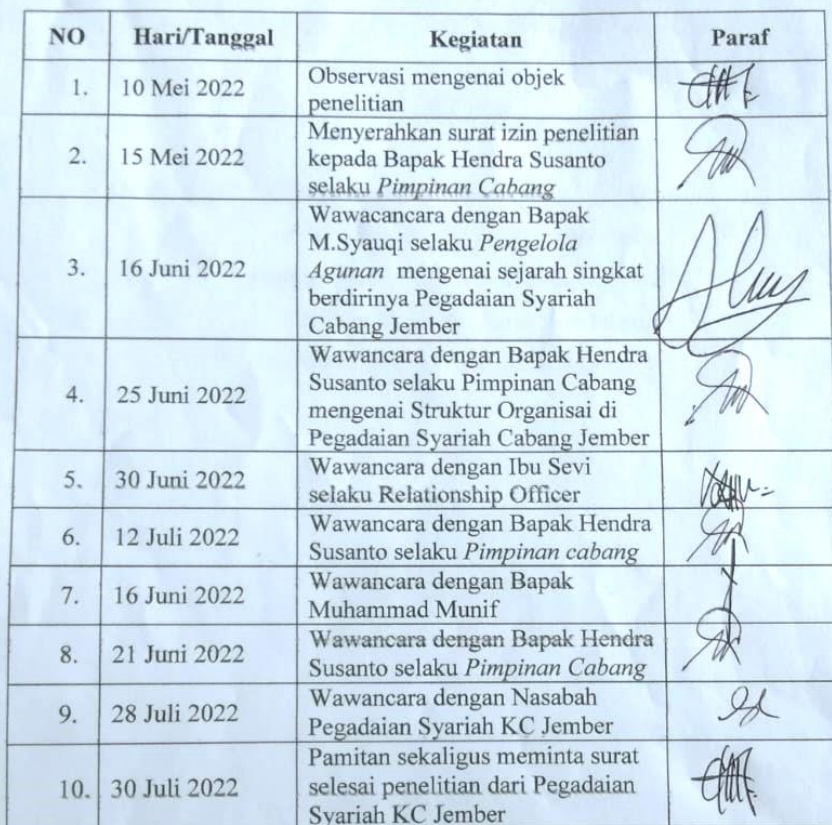 NO Hari/Tanggal Kegiatan Paraf
1. 10 Mei 2022 Observasi mengenai objek
penelitian
Menyerahkan surat izin penelitian
2. 15 Mei 2022 kepada Bapak Hendra Susanto
selaku Pimpinan Cabang
Wawacancara dengan Bapak
M.Syauqi selaku Pengelola
3. 16 Juni 2022 Agunan mengenai sejarah singkat
berdirinya Pegadaian Syariah
Cabang Jember
Wawancara dengan Bapak Hendra
Susanto selaku Pimpinan Cabang
4. 25 Juni 2022 mengenai Struktur Organisai di
Pegadaian Syariah Cabang Jember
5. 30 Juni 2022 Wawancara dengan Ibu Sevi
selaku Relationship Officer
6. 12 Juli 2022 Wawancara dengan Bapak Hendra
Susanto selaku Pimpinan cabang
7. 16 Juni 2022 Wawancara dengan Bapak
Muhammad Munif
8. 21 Juni 2022 Wawancara dengan Bapak Hendra
Susanto selaku Pimpinan Cabang
9. 28 Juli 2022 Wawancara dengan Nasabah
Pegadaian Syariah KC Jember
Pamitan sekaligus meminta surat
10. 30 Juli 2022 selesai penelitian dari Pegadaian
Syariah KC Jember